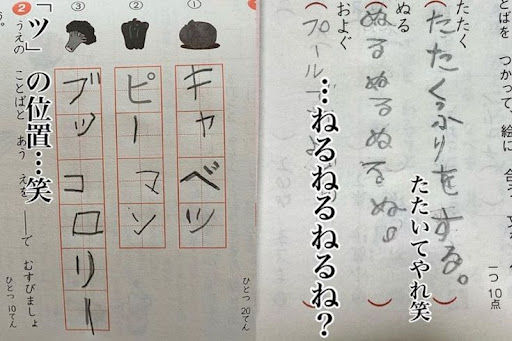 とばを つかって、絵に 合う
一つ10点
たたく
たたくふりをする。
たたいてやれ笑
ぬる
ぬるぬるぬるぬ。
…ねるねるねるね？
およぐ
プールで
ひとつ 20てん
①
キャベツ
②
ピーマン
③
ブッコロリー
2 うえの ことばと あう えを ──で むすびましょ
う。
ひとつ 10てん
「ツ」の位置…笑